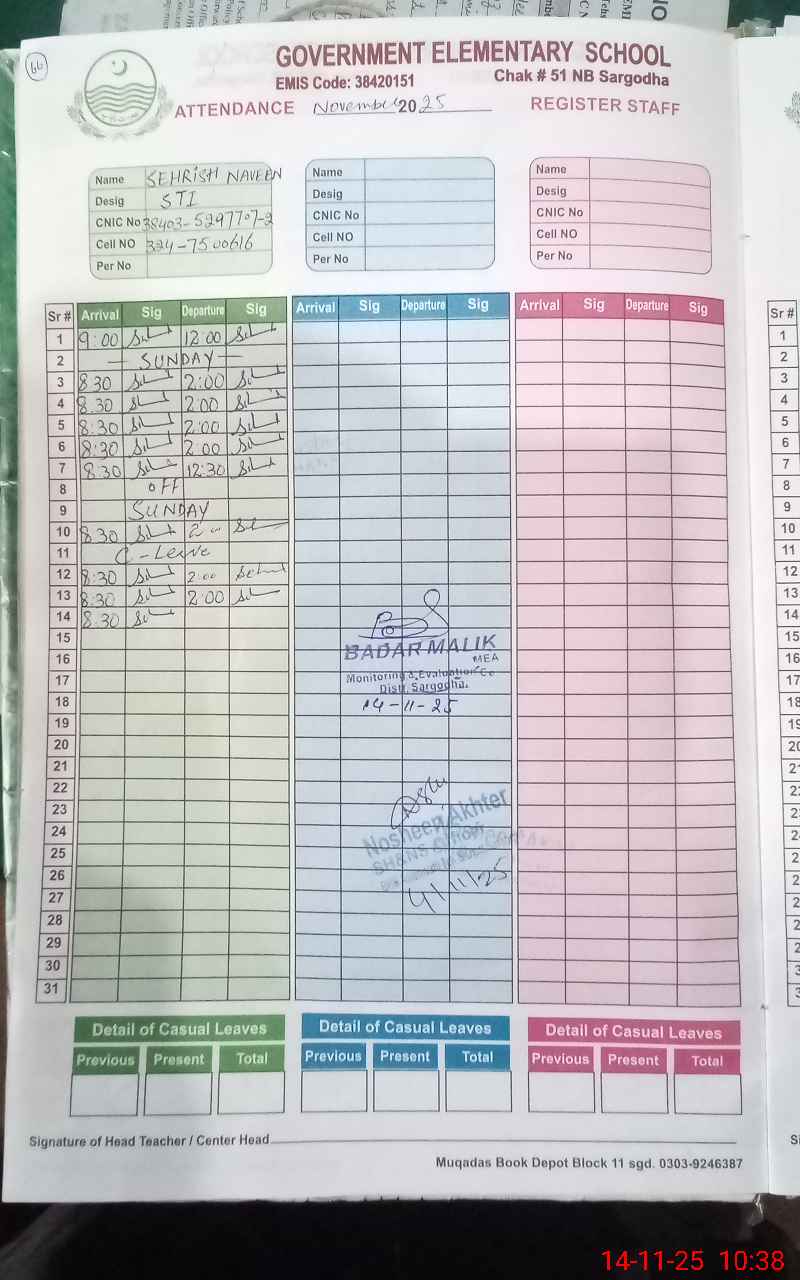 66
GOVERNMENT ELEMENTARY SCHOOL
EMIS Code: 38420151 Chak # 51 NB Sargodha
ATTENDANCE November 2025 REGISTER STAFF
Name SEHRISH NAVEEN
Desig STI
CNIC No 38403-5297707-2
Cell NO 324-7500616
Per No
Name
Desig
CNIC No
Cell NO
Per No
Name
Desig
CNIC No
Cell NO
Per No
Sr # Arrival Sig Departure Sig Arrival Sig Departure Sig Arrival Sig Departure Sig
1 9:00 12:00
2 — SUNDAY —
3 8 30 2:00
4 8.30 2:00
5 8:30 2:00
6 8:30 2:00
7 8:30 12:30
8 OFF
9 SUNDAY
10 8 30 2 00
11 C-Leave
12 8:30 2:00
13 8:30 2:00
14 8.30
15
16
17
18
19
20
21
22
23
24
25
26
27
28
29
30
31
BADAR MALIK
MEA
Monitoring & Evaluation Ce
Distr. Sargodha.
14-11-25
Nosheen Akhter
4/11/25
Detail of Casual Leaves Detail of Casual Leaves Detail of Casual Leaves
Previous Present Total Previous Present Total Previous Present Total
Signature of Head Teacher / Center Head
Muqadas Book Depot Block 11 sgd. 0303-9246387
14-11-25 10:38